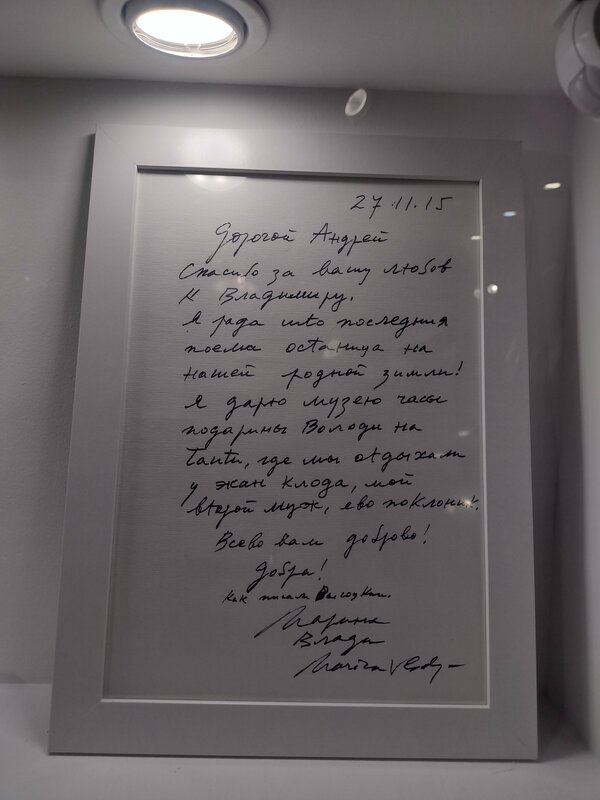 27.11.15
Дорогой Андрей
Спасибо за вашу любов
к Владимиру.
Я рада што последния
поема останица на
нашей родной зимли!
Я дарю музею часы
подарины Володи на
Таити, где мы отдыхали
у жан клода, мой
второй муж, ево поклоник.
Всево вам доброво!
Добра!
Как писал Высоцкий.
Марина
Влади
Marina Vlady